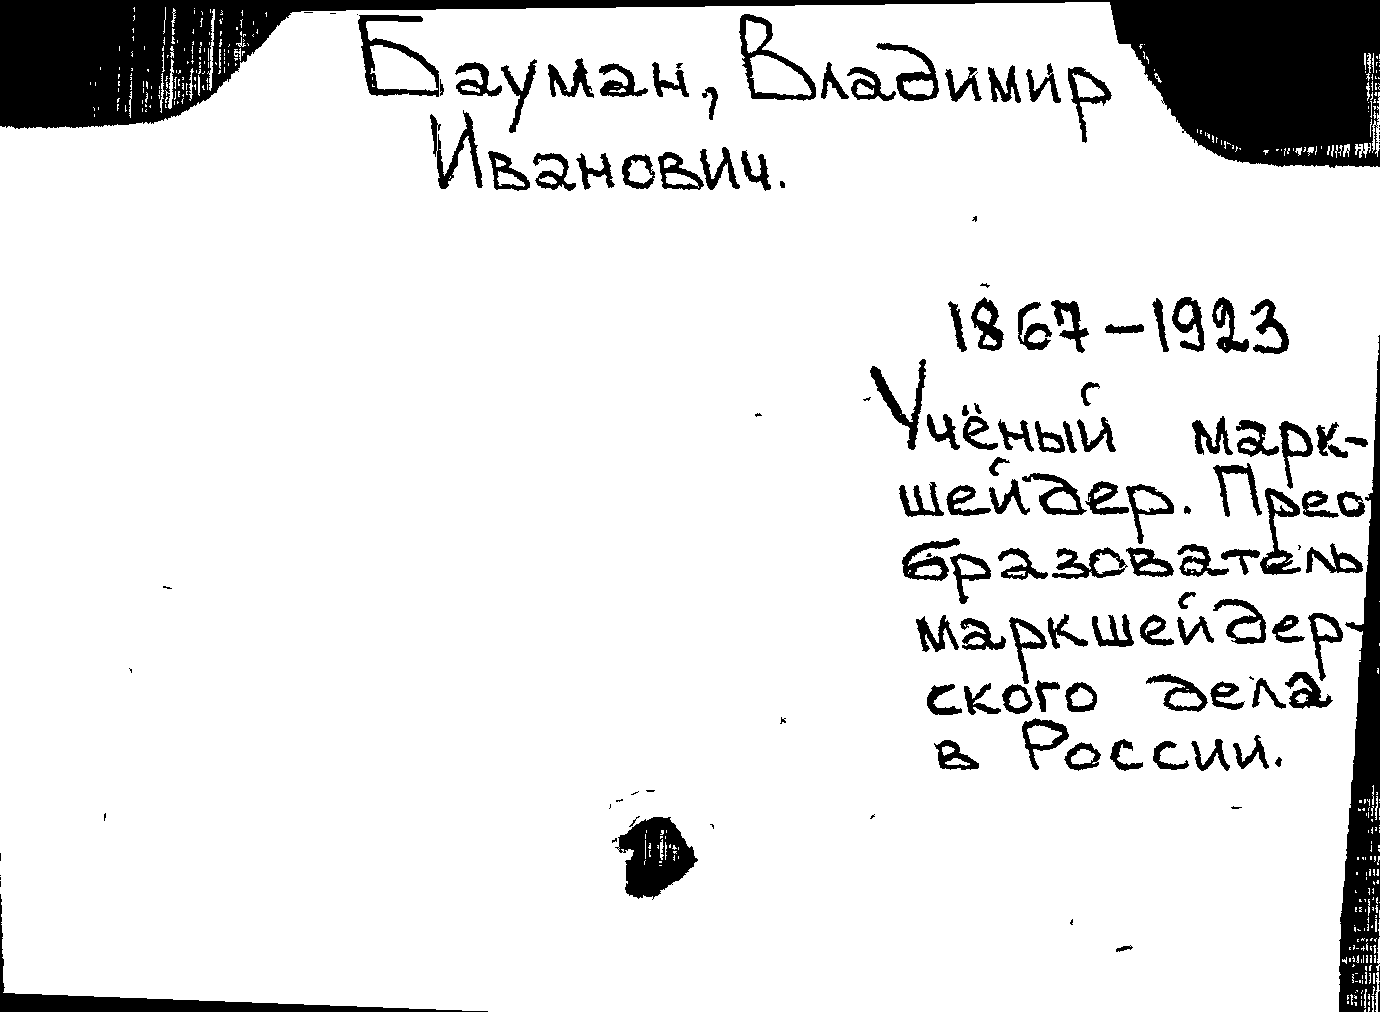 Бауман, Владимир
Иванович.
1867-1923
Учёный марк-
шейдер. Прео
бразователь
маркшейдер-
ского дела
в России.